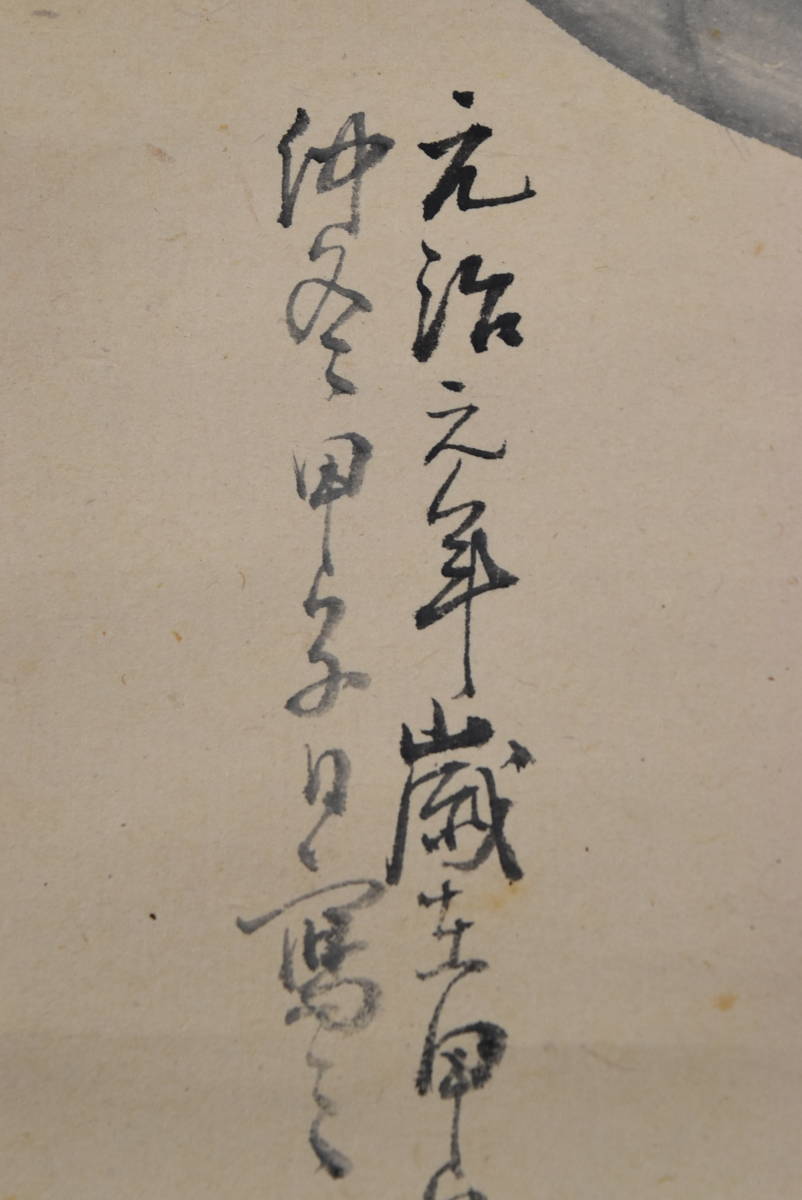 元治元年歳在甲
仲冬甲子日寫之